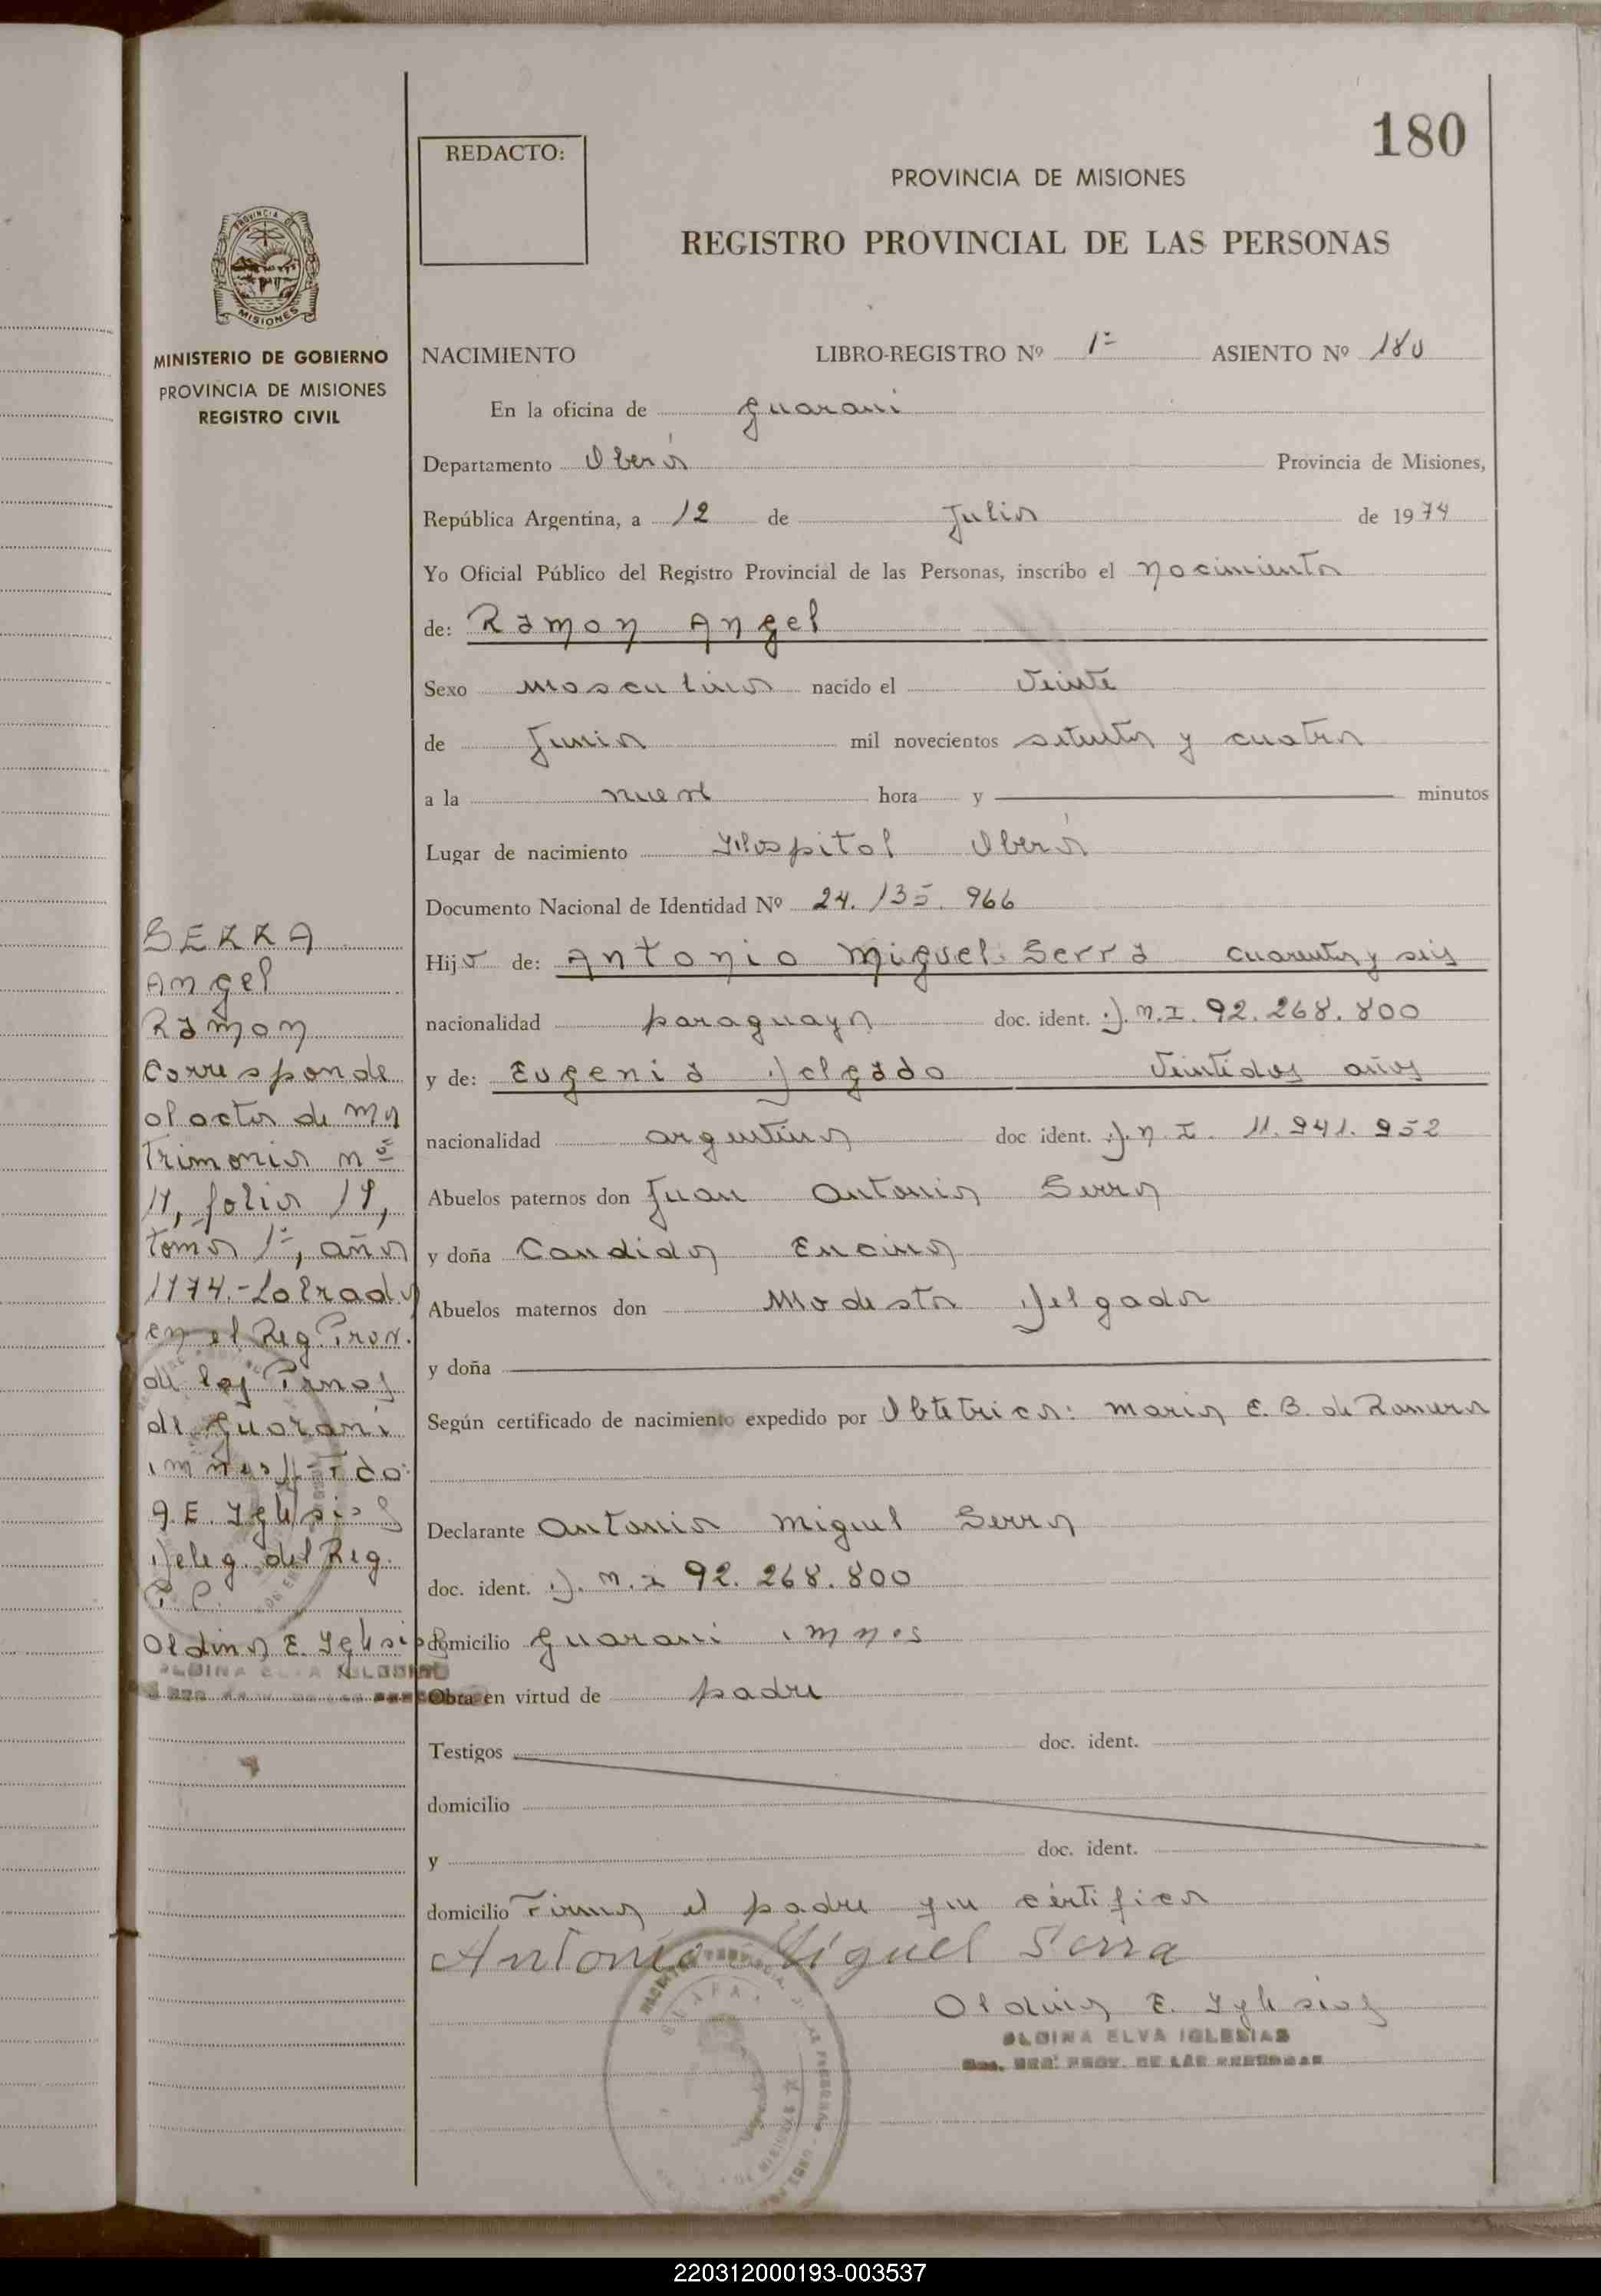 180
REDACTO:
PROVINCIA DE MISIONES
REGISTRO PROVINCIAL DE LAS PERSONAS
PROVINCIA DE
MISIONES
MINISTERIO DE GOBIERNO
PROVINCIA DE MISIONES
REGISTRO CIVIL
NACIMIENTO LIBRO-REGISTRO Nº 1º ASIENTO Nº 180
En la oficina de Guarani
Departamento Oberá Provincia de Misiones,
República Argentina, a 12 de Julio de 1974
Yo Oficial Público del Registro Provincial de las Personas, inscribo el nacimiento
de: Ramon Angel
Sexo masculino nacido el veinte
de Junio mil novecientos setenta y cuatro
a la nueve hora y minutos
Lugar de nacimiento Hospital Oberá
Documento Nacional de Identidad Nº 24.135.966
Hijo de: Antonio Miguel Serra cuarenta y seis
nacionalidad paraguaya doc. ident. D.N.I. 92.268.800
y de: Eugenia Delgado veintidos años
nacionalidad argentina doc ident. D.N.I. 11.941.952
Abuelos paternos don Juan Antonio Serra
y doña Candida Encina
Abuelos maternos don Modesto Delgado
y doña
Según certificado de nacimiento expedido por Obtetrica: Maria E. B. de Romero
Declarante Antonio Miguel Serra
doc. ident. D.N.I 92.268.800
domicilio Guarani Mnes
Obra en virtud de padre
Testigos doc. ident.
domicilio
y doc. ident.
domicilio Firma el padre que certifica
Antonio Miguel Serra
Oldina E. Yglesias
OLDINA ELVA IGLESIAS
REG. PROV. DE LAS PERSONAS
SERRA
Angel
Ramon
Corresponde
al acta de Ma
trimonio nº
11, folio 11,
tomo 1º, año
1974.- Labrada
en el Reg. Prov.
de las Prnas
de Guarani
Mnes Fdo:
O.E. Yglesias
Deleg. del Reg.
P.P.
Oldina E. Yglesias
OLDINA ELVA IGLESIAS
220312000193-003537